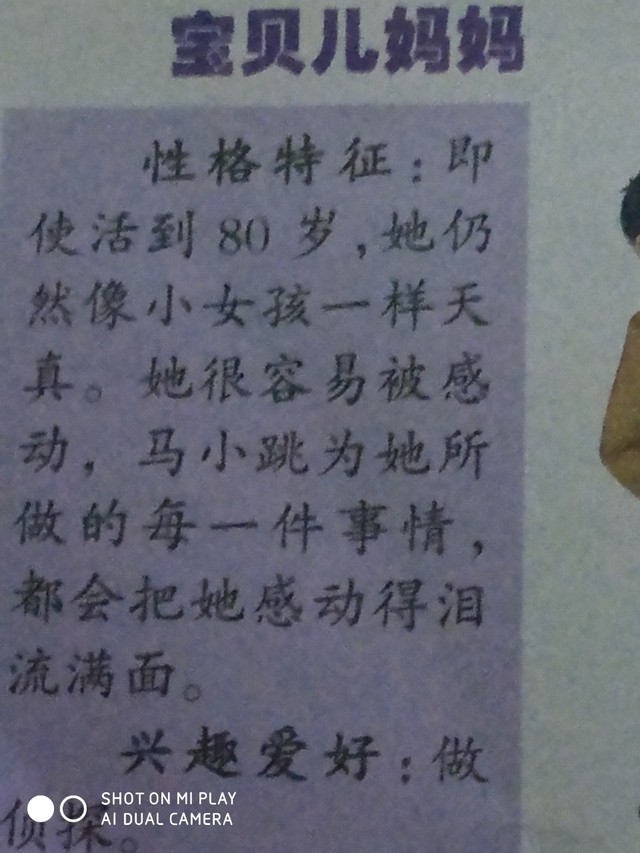 宝贝儿妈妈
性格特征：即
使活到80岁，她仍
然像小女孩一样天
真。她很容易被感
动，马小跳为她所
做的每一件事情，
都会把她感动得泪
流满面。
兴趣爱好：做
侦探。
SHOT ON MI PLAY
AI DUAL CAMERA